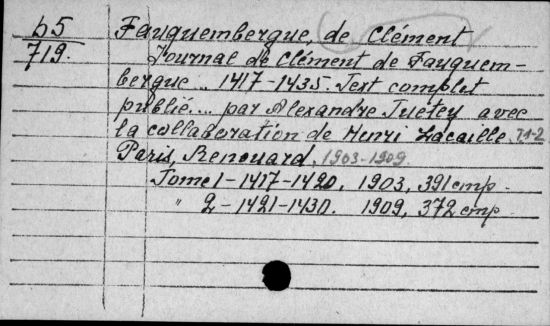 b5
719.
Fauquembergue, de Clément
Journal de Clément de Fauquem-
bergue... 1417-1435. Text complet
publié... par Alexandre Tuetey avec
la collaboration de Henri Lacaille. T.1-2
Paris, Renouard, 1903-1909.
Tome 1-1417-1420. 1903, 391 стр.
" 2-1421-1430. 1909, 372 стр.